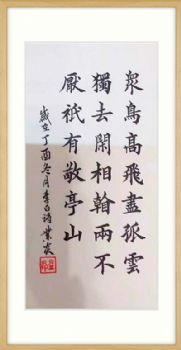 眾鳥高飛盡孤雲
獨去閑相翰兩不
厭祇有敬亭山
歲在丁酉冬月李白詩業